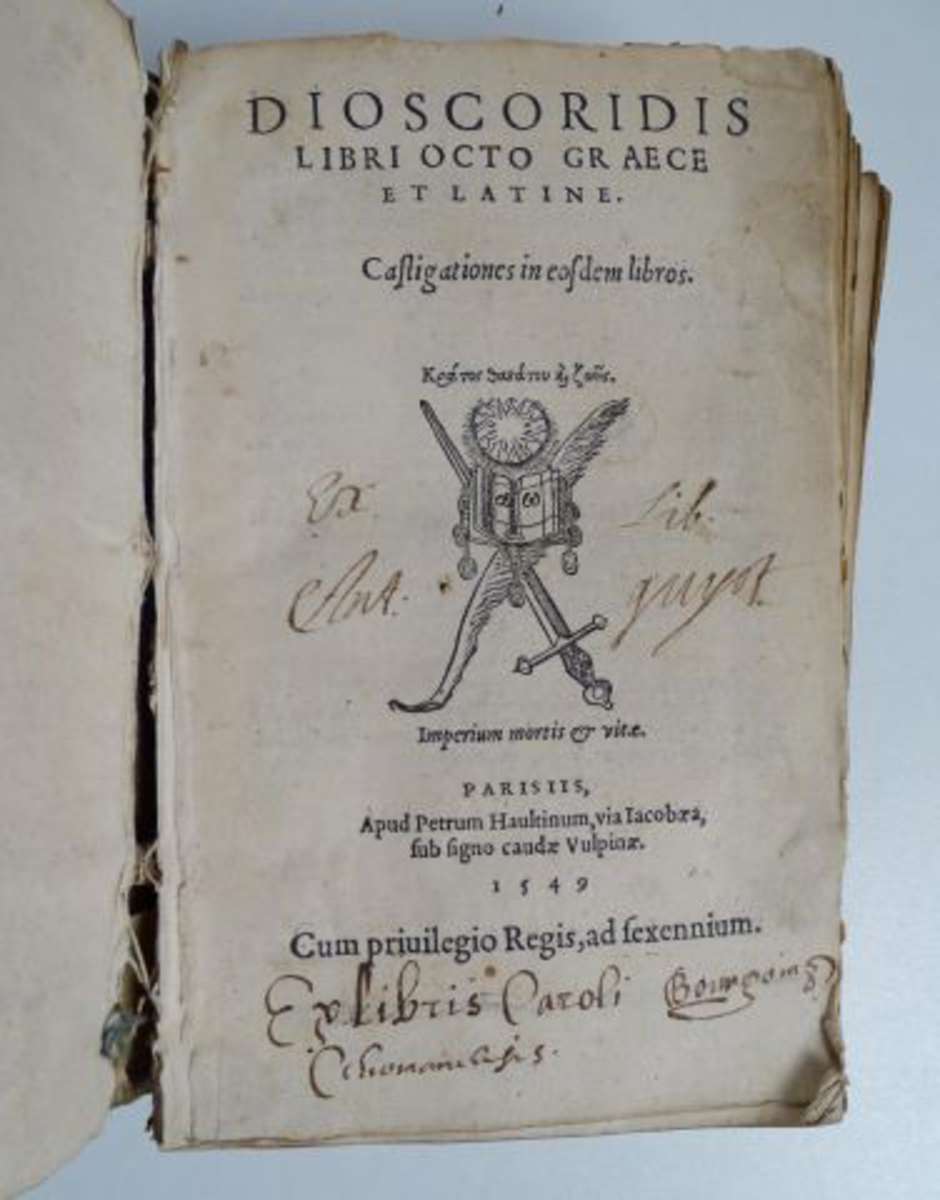 DIOSCORIDIS
LIBRI OCTO GRAECE
ET LATINE.
Caſtigationes in eoſdem libros.
Κράτος θανάτου ϗ ζωῆς.
α ω
Ex Lib.
Ant. guyot.
Imperium mortis & vitæ.
PARISIIS,
Apud Petrum Haultinum, via Iacobæa,
ſub ſigno caudæ Vulpinæ.
1549
Cum priuilegio Regis, ad ſexennium.
Ex libris Caroli Bourgoing
Cenomanensis.